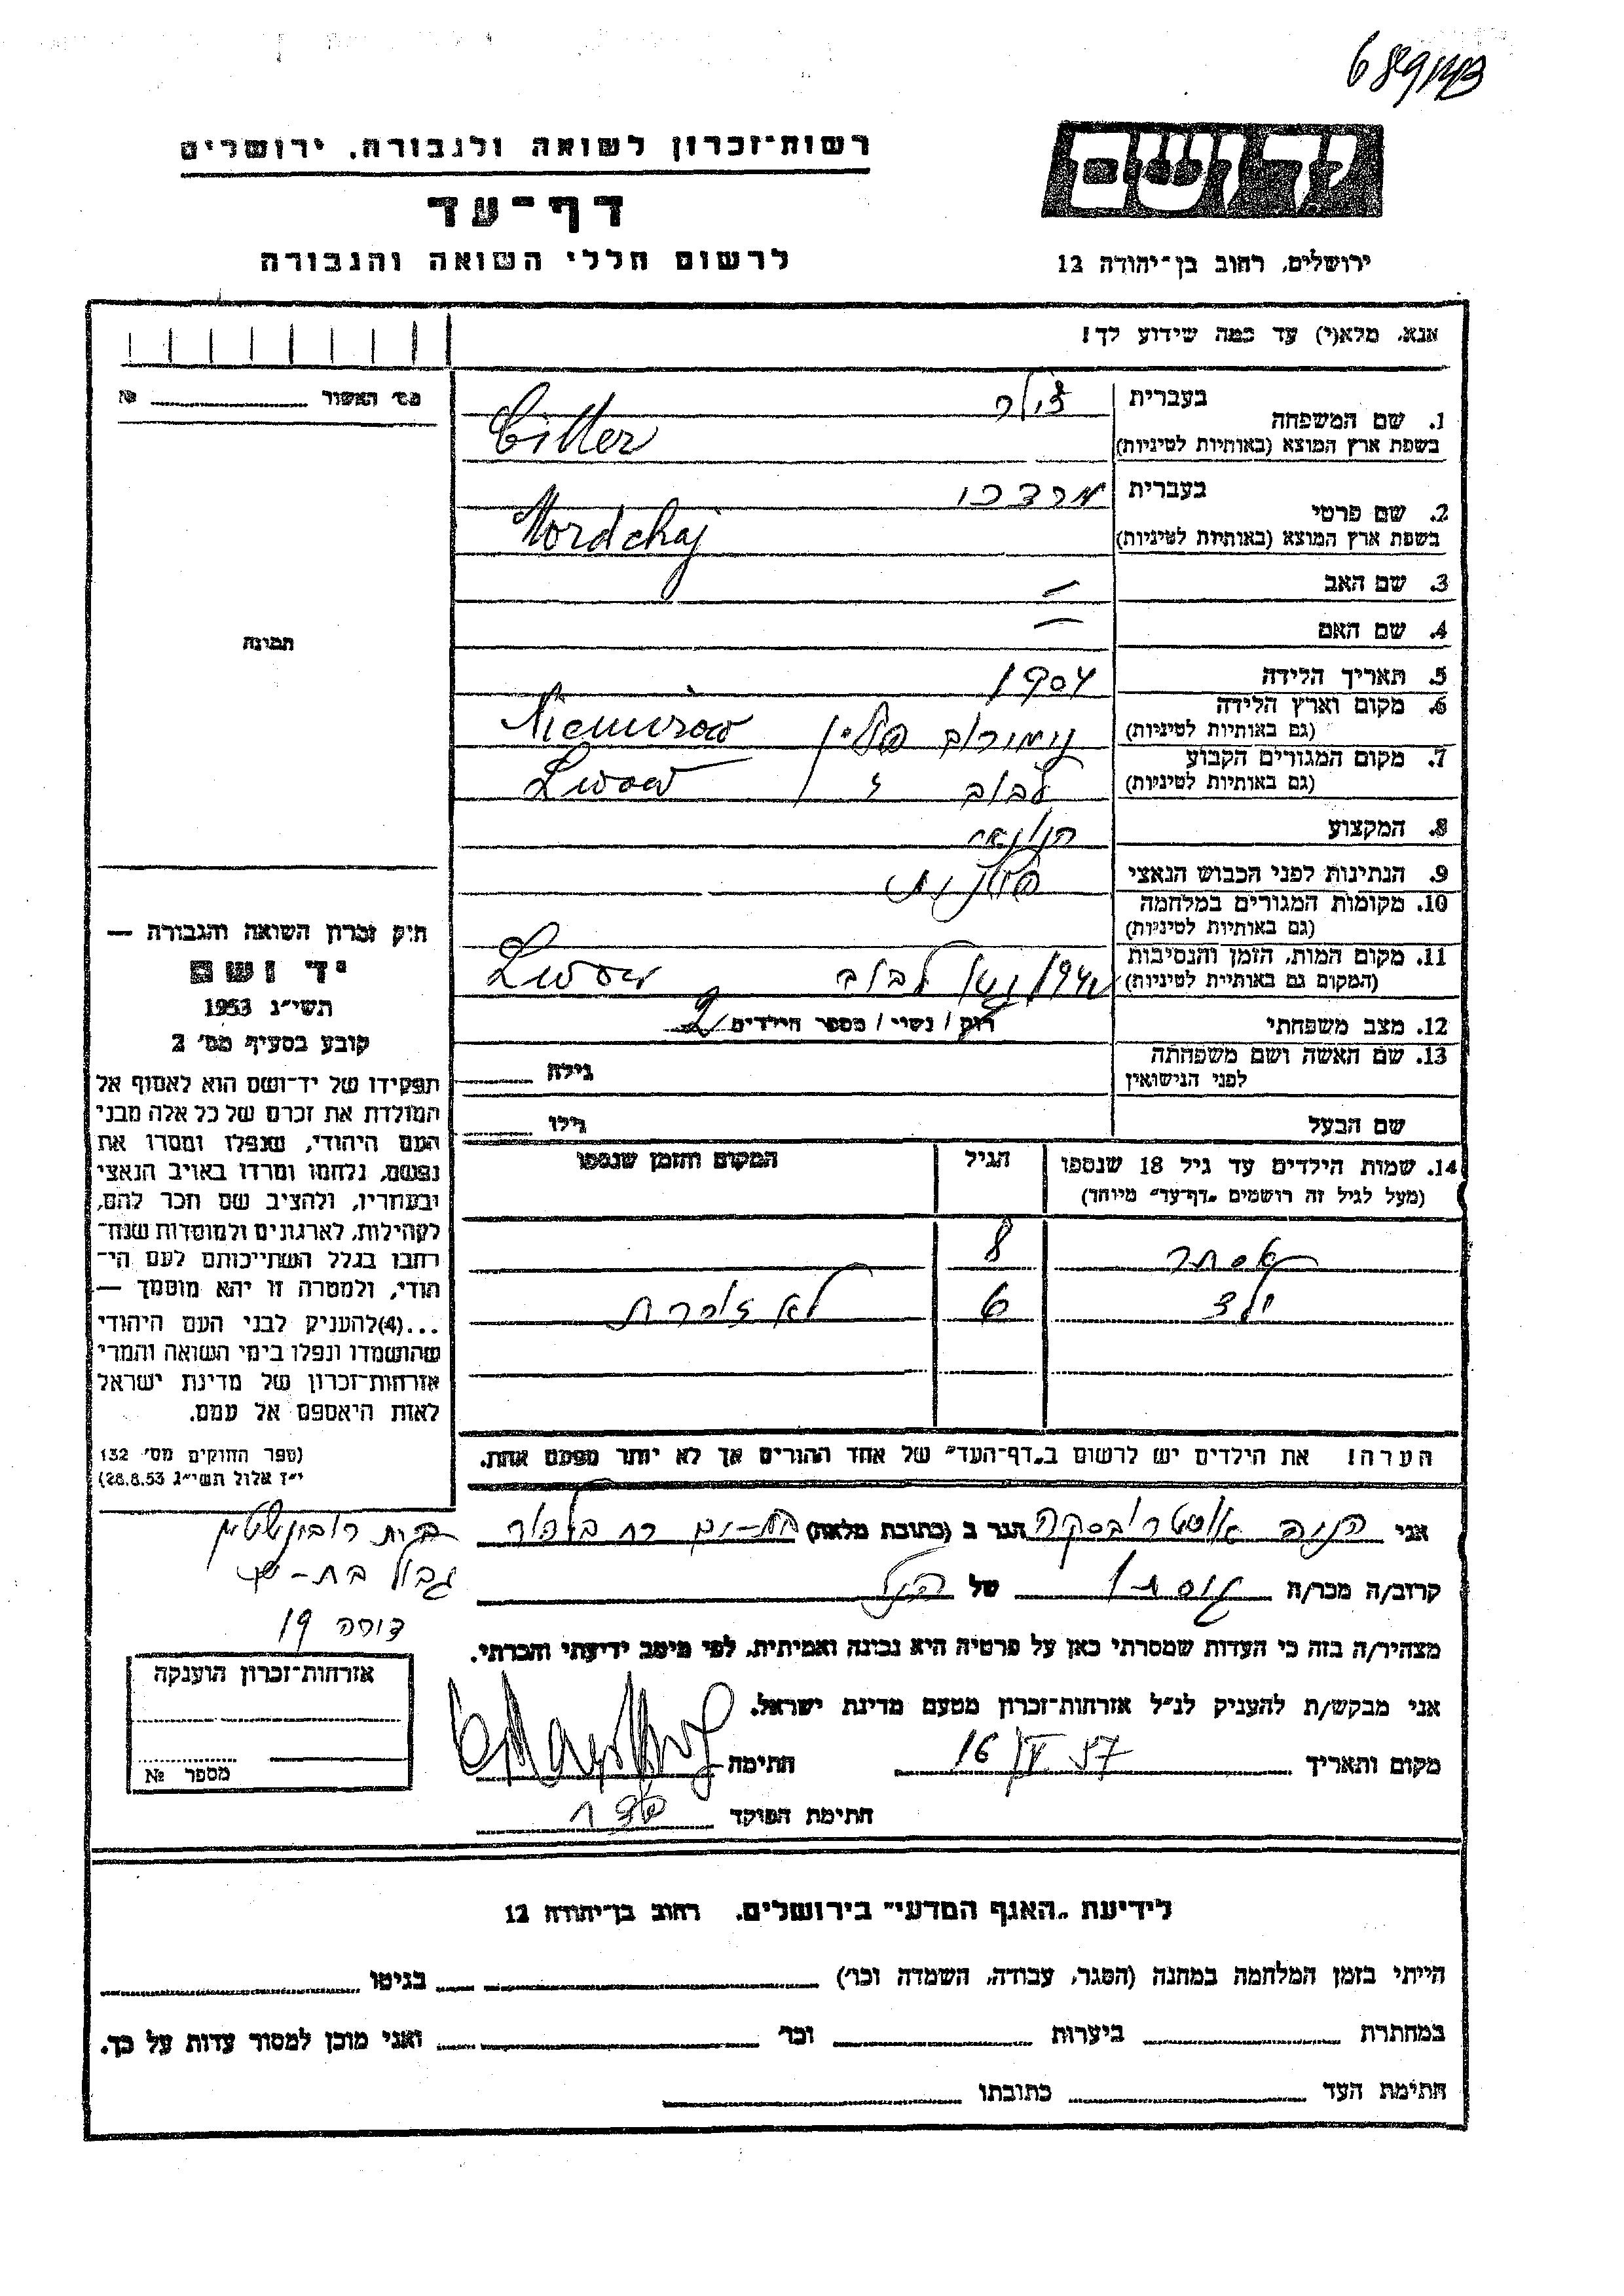 רשות־זכרון לשואה ולגבורה, ירושלים
דף־עד
לרשום חללי השואה והגבורה
יד ושם
ירושלים, רחוב בן־יהודה 12
אנא, מלא(י) עד כמה שידוע לך!
מס׳ האשור № 
1. שם המשפחה
בעברית
בשפת ארץ המוצא (באותיות לטיניות)
2. שם פרטי
בעברית מרדכי
בשפת ארץ המוצא (באותיות לטיניות) Mordchaj
3. שם האב —
4. שם האם —
5. תאריך הלידה 1904
6. מקום וארץ הלידה (גם באותיות לטיניות) נימירוב פולין Niemirow
7. מקום המגורים הקבוע (גם באותיות לטיניות) לבוב Lwow
8. המקצוע
9. הנתינות לפני הכבוש הנאצי פולנית
10. מקומות המגורים במלחמה
(גם באותיות לטיניות)
11. מקום המות, הזמן והנסיבות
(המקום גם באותיות לטיניות) לבוב Lwow
12. מצב משפחתי רוק / נשוי / מספר הילדים 2
13. שם האשה ושם משפחתה
לפני הנישואין גילה
שם הבעל גילו
14. שמות הילדים עד גיל 18 שנספו הגיל המקום והזמן שנספו
(מעל לגיל זה רושמים „דף־עד״ מיוחד)
אסתר 8
ילד 6 לא זוכרת
הערה! את הילדים יש לרשום ב„דף־העד״ של אחד ההורים אך לא יותר מפעם אחת.
תמונה
חוק זכרון השואה והגבורה —
יד ושם
תשי״ג 1953
קובע בסעיף מס׳ 2
תפקידו של יד־ושם הוא לאסוף אל
המולדת את זכרם של כל אלה מבני
העם היהודי, שנפלו ומסרו את
נפשם, נלחמו ומרדו באויב הנאצי
ובעוזריו, ולהציב שם וזכר להם,
לקהילות, לארגונים ולמוסדות שנח־
רבו בגלל השתייכותם לעם הי־
הודי, ולמטרה זו יהא מוסמך —
...(4)להעניק לבני העם היהודי
שהושמדו ונפלו בימי השואה והמרי
אזרחות־זכרון של מדינת ישראל
לאות היאספם אל עמם.
(ספר החוקים מס׳ 132
י״ז אלול תשי״ג 28.8.53)
אני חנה אוסטרובסקה הגר ב (כתובת מלאה) בת-ים
גבול בת-ים
קרוב/ה מכר/ה של הנ״ל
19
מצהיר/ה בזה כי העדות שמסרתי כאן על פרטיה היא נכונה ואמיתית, לפי מיטב ידיעתי והכרתי.
אני מבקש/ת להעניק לנ״ל אזרחות־זכרון מטעם מדינת ישראל.
מקום ותאריך 16/IV 57 חתימה
חתימת הפוקד
אזרחות־זכרון הוענקה
מספר №
לידיעת „האגף המדעי״ בירושלים, רחוב בן־יהודה 12
הייתי בזמן המלחמה במחנה (הסגר, עבודה, השמדה וכו׳) בגיטו
במחתרת ביערות וכו׳ ואני מוכן למסור עדות על כך.
חתימת העד כתובתו